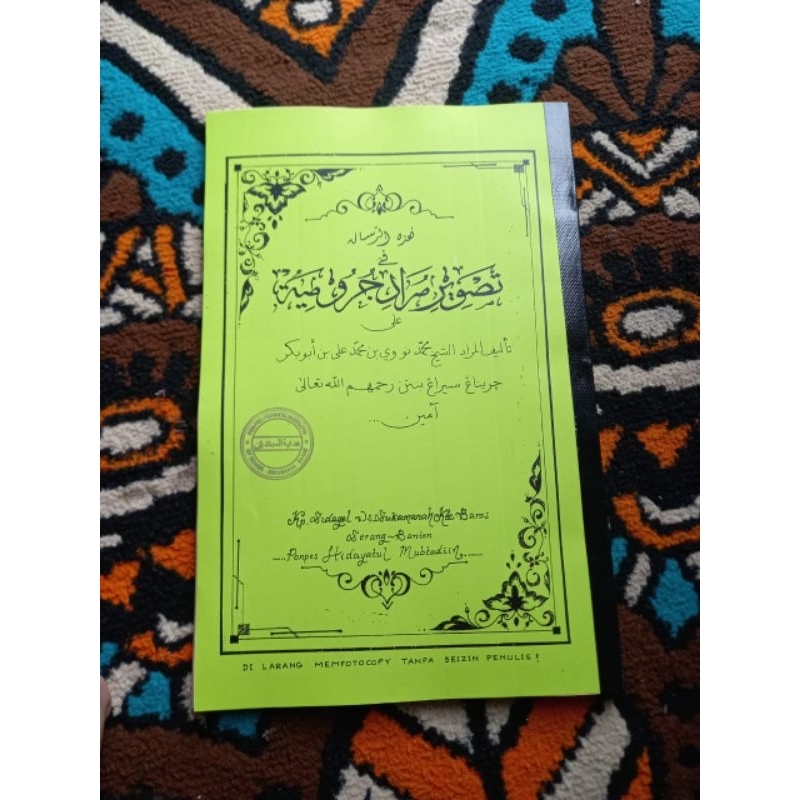 نهزه الرساله
في
تَصْوِيْرِ مُرَادِ جُرُوْمِيَة
على
تأليف المراد الشيخ محمّد نووي بن محمّد على بن أبوبكر
جريناغ سيراغ بنتن رحمهم الله تعالى
آمين...
هداية المبتدئين
Kp. Sidagel Ds. Sukamanah Kec Baros
Serang-Banten
....Ponpes Hidayatul Mubtadiin......
DI LARANG MEMFOTOCOPY TANPA SEIZIN PENULIS!